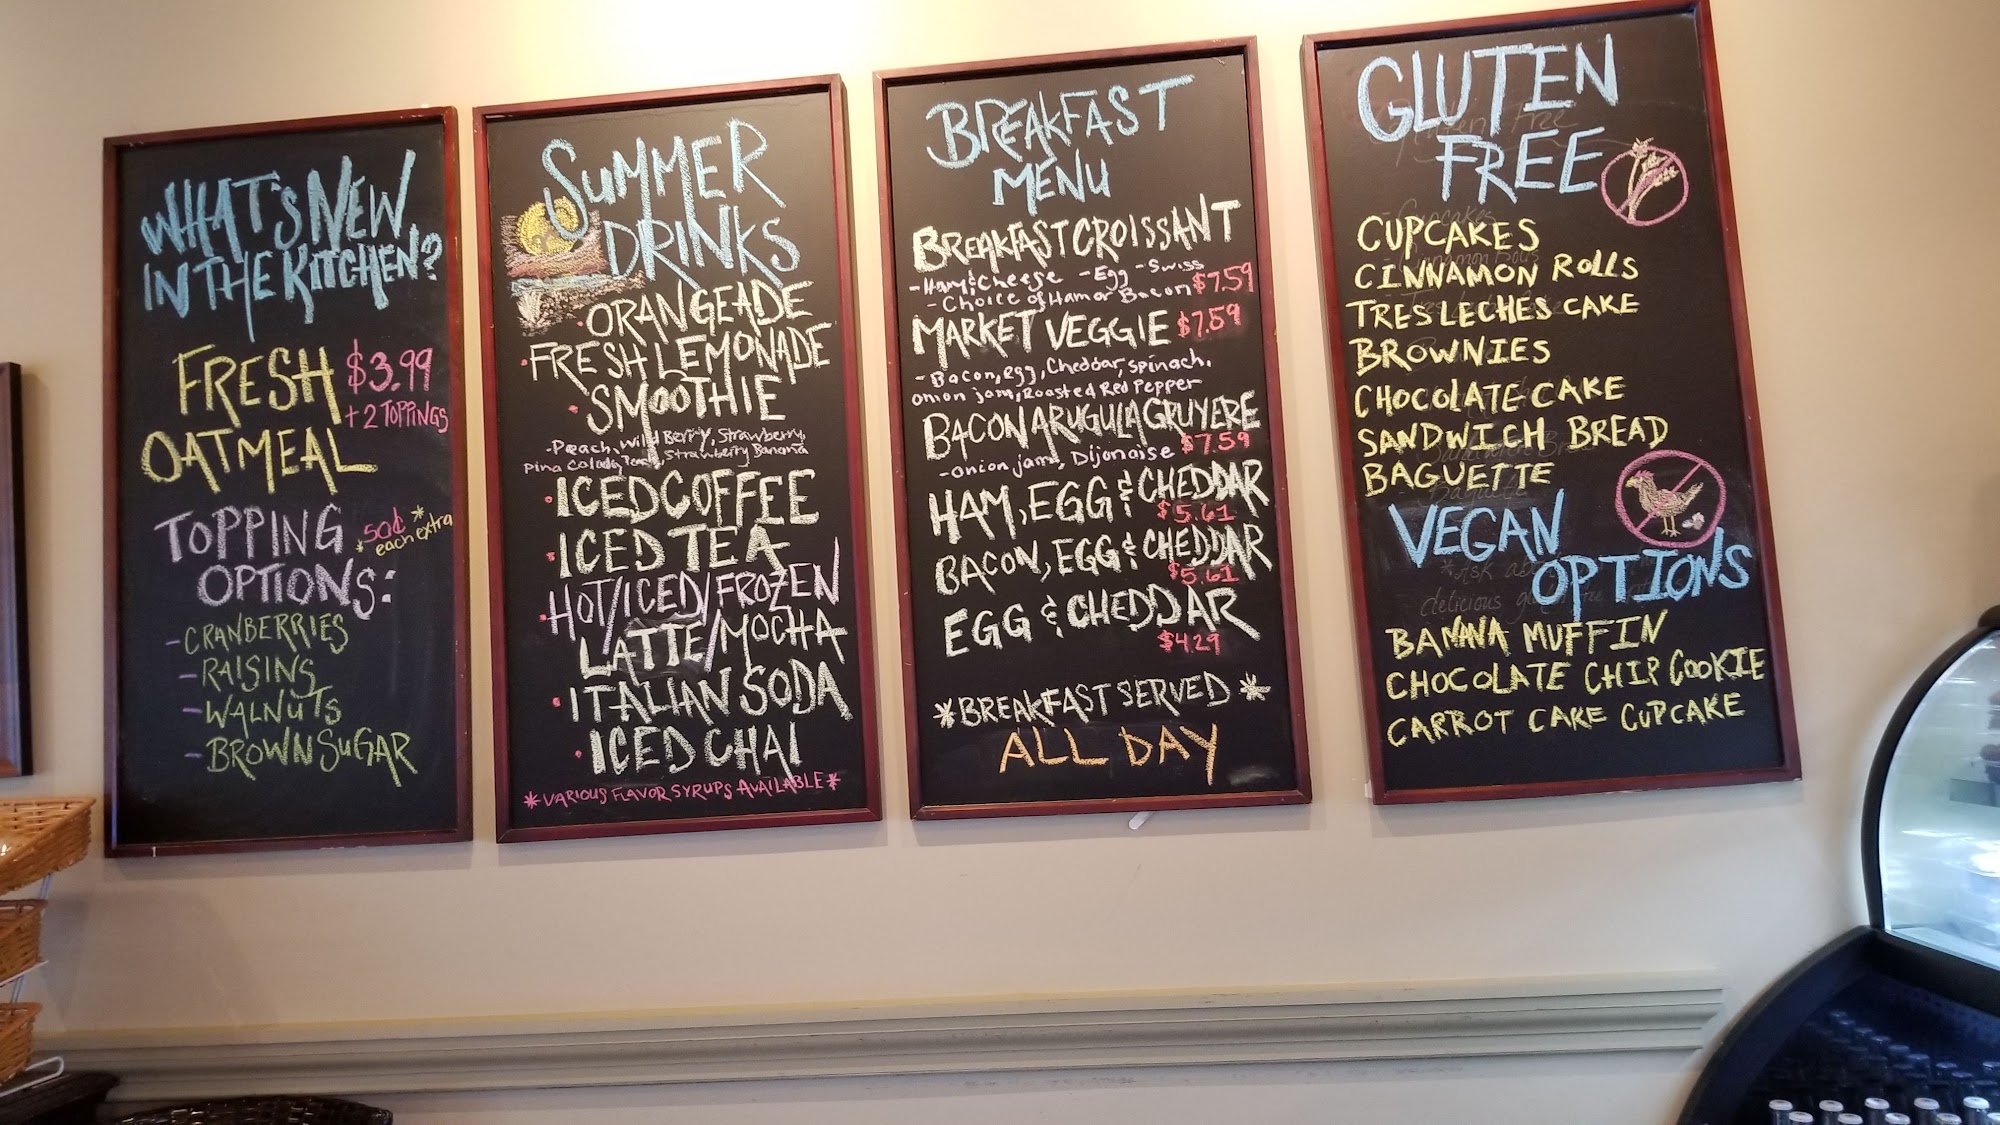 WHAT'S NEW
IN THE KITCHEN?
FRESH $3.99
+ 2 TOPPINGS
OATMEAL
TOPPING .50¢ *
* each extra
OPTIONS:
- CRANBERRIES
- RAISINS
- WALNUTS
- BROWN SUGAR
SUMMER
DRINKS
· ORANGEADE
· FRESH LEMONADE
· SMOOTHIE
- Peach, Wild Berry, Strawberry,
Pina Colada, Strawberry Banana
· ICED COFFEE
· ICED TEA
· HOT/ICED/FROZEN
LATTE/MOCHA
· ITALIAN SODA
· ICED CHAI
* VARIOUS FLAVOR SYRUPS AVAILABLE *
BREAKFAST
MENU
BREAKFAST CROISSANT
- Ham & Cheese - Egg - Swiss
- Choice of Ham or Bacon $7.59
MARKET VEGGIE $7.59
- Bacon, egg, Cheddar, spinach,
onion jam, Roasted Red Pepper
BACON ARUGULA GRUYERE
- onion jam, Dijonaise $7.59
HAM, EGG & CHEDDAR
$5.61
BACON, EGG & CHEDDAR
$5.61
EGG & CHEDDAR
$4.29
* BREAKFAST SERVED *
ALL DAY
GLUTEN
FREE
CUPCAKES
CINNAMON ROLLS
TRES LECHES CAKE
BROWNIES
CHOCOLATE CAKE
SANDWICH BREAD
BAGUETTE
VEGAN
OPTIONS
BANANA MUFFIN
CHOCOLATE CHIP COOKIE
CARROT CAKE CUPCAKE